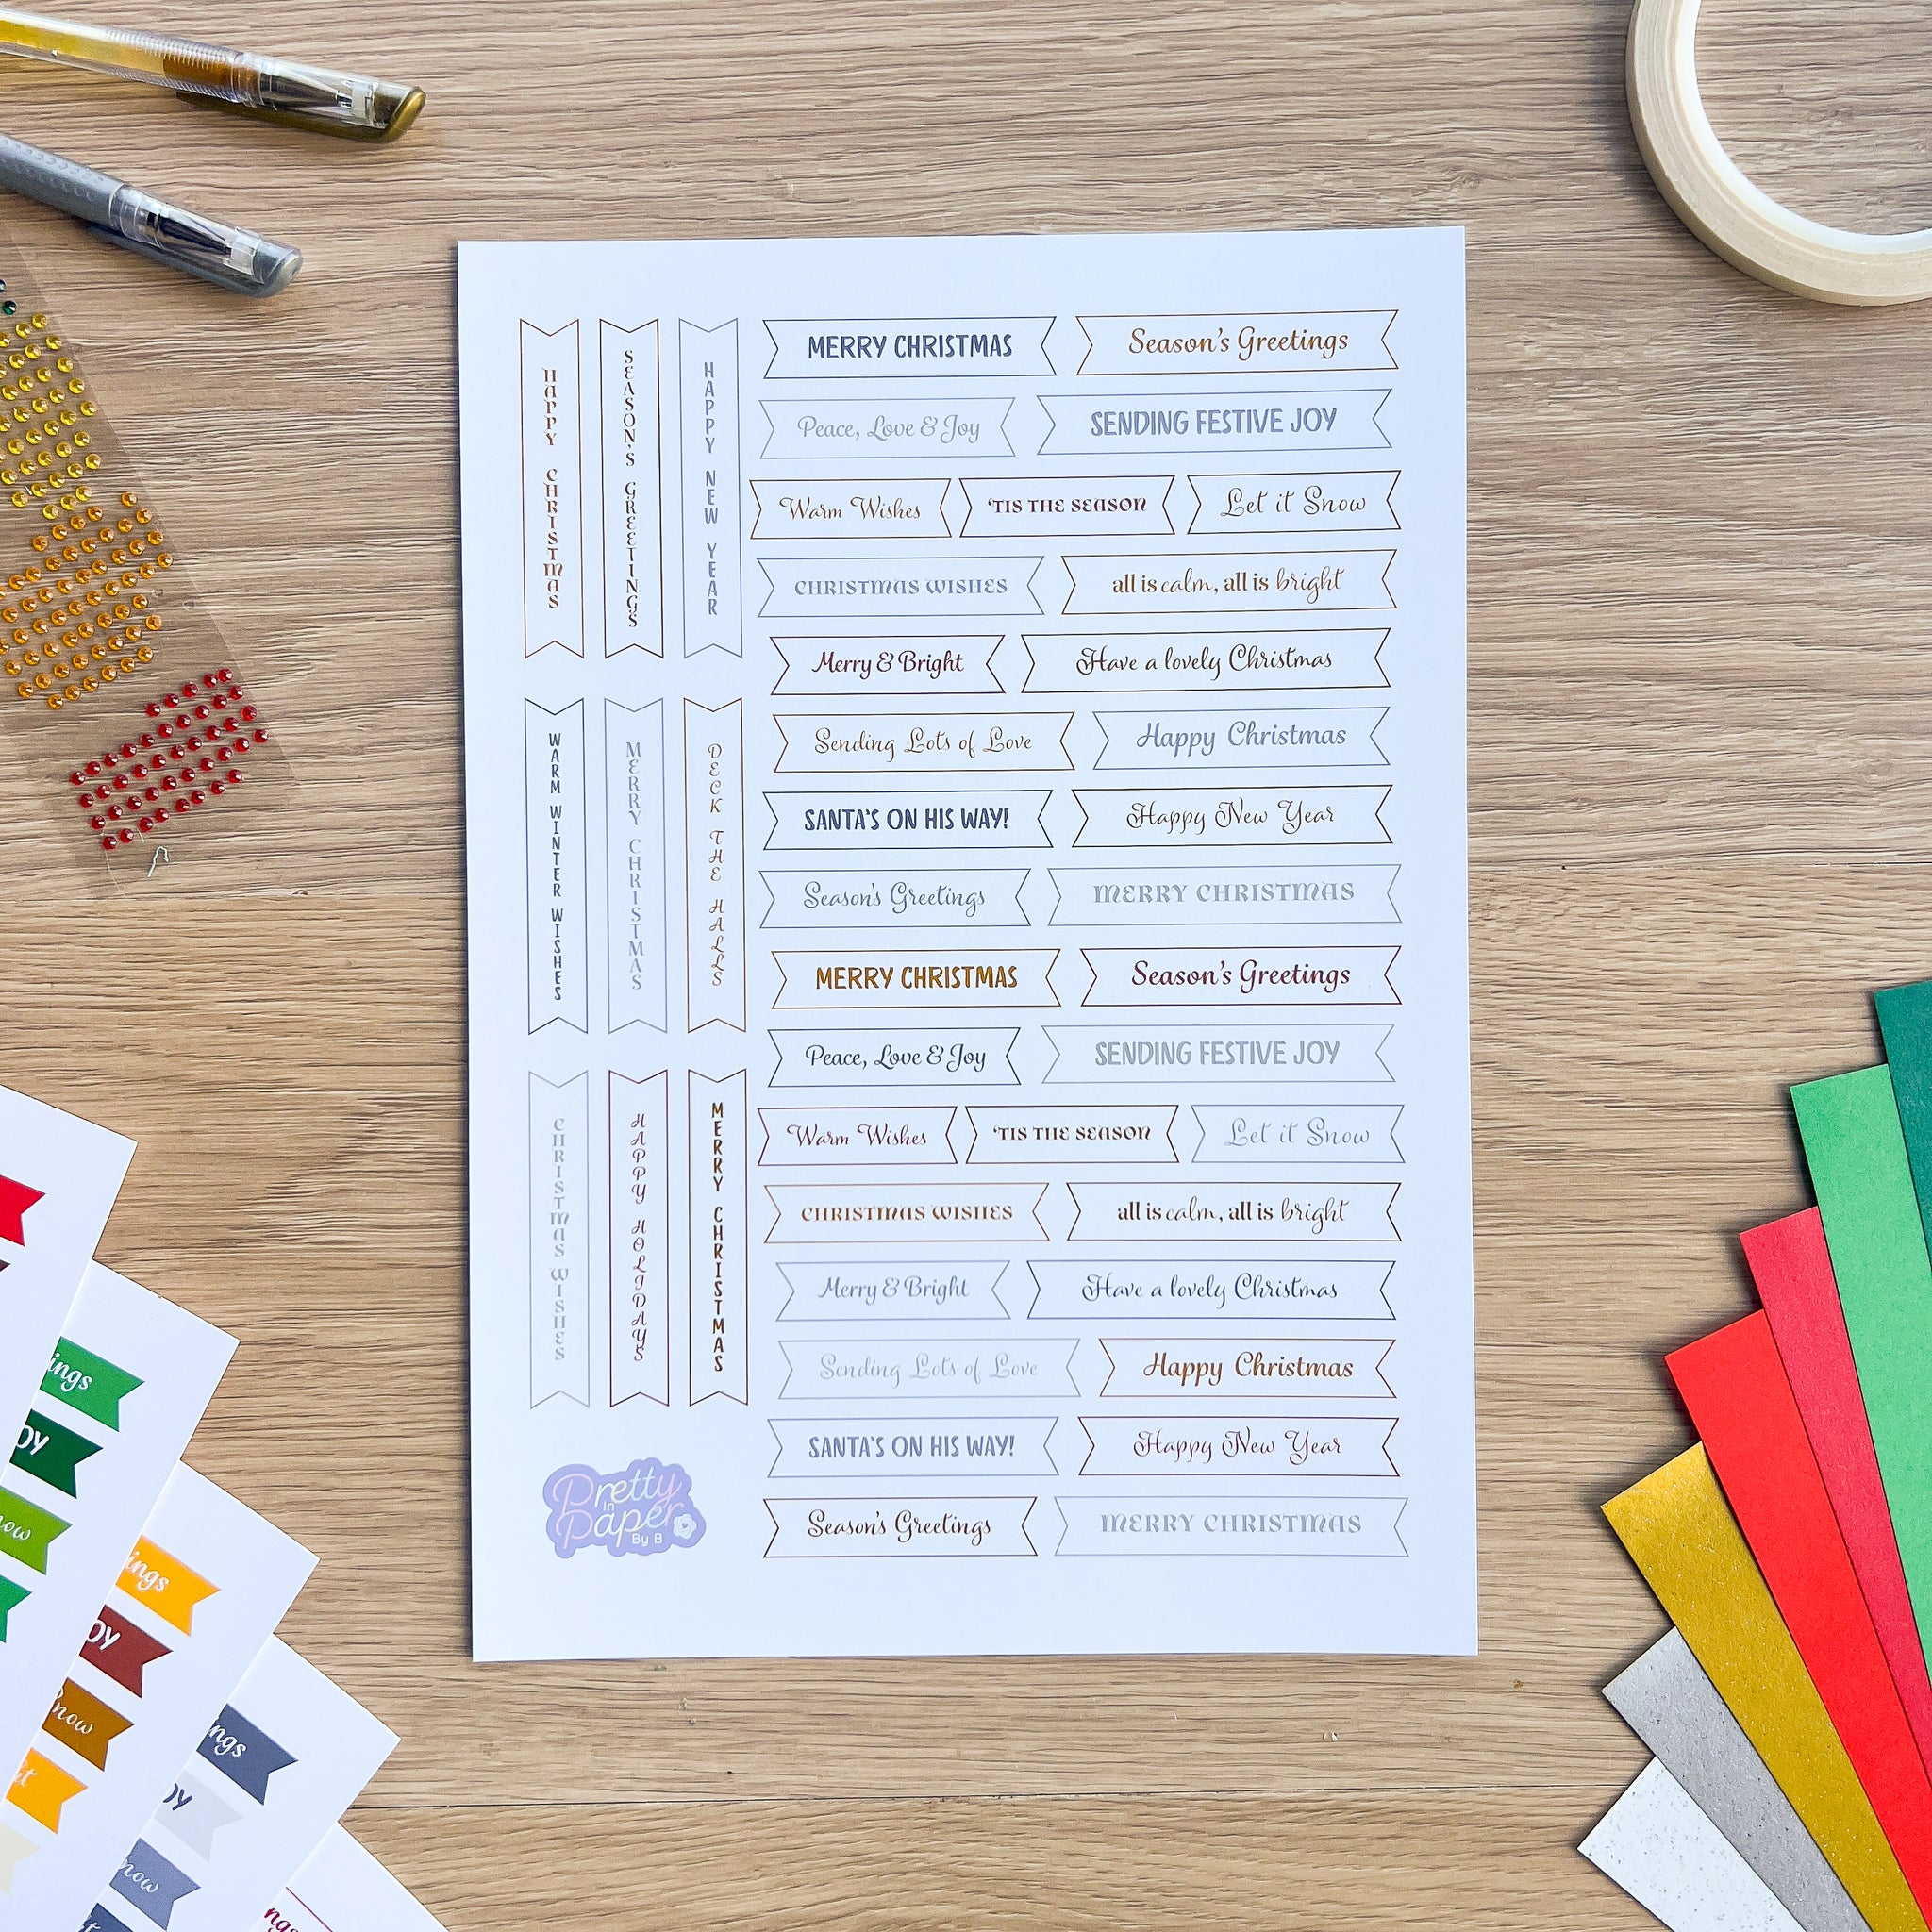 HAPPY CHRISTMAS
SEASON'S GREETINGS
HAPPY NEW YEAR
MERRY CHRISTMAS
Season's Greetings
Peace, Love & Joy
SENDING FESTIVE JOY
Warm Wishes
'TIS THE SEASON
Let it Snow
CHRISTMAS WISHES
all is calm, all is bright
Merry & Bright
Have a lovely Christmas
WARM WINTER WISHES
MERRY CHRISTMAS
DECK THE HALLS
Sending Lots of Love
Happy Christmas
SANTA'S ON HIS WAY!
Happy New Year
Season's Greetings
MERRY CHRISTMAS
MERRY CHRISTMAS
Season's Greetings
Peace, Love & Joy
SENDING FESTIVE JOY
CHRISTMAS WISHES
HAPPY HOLIDAYS
MERRY CHRISTMAS
Warm Wishes
'TIS THE SEASON
Let it Snow
CHRISTMAS WISHES
all is calm, all is bright
Merry & Bright
Have a lovely Christmas
Sending Lots of Love
Happy Christmas
SANTA'S ON HIS WAY!
Happy New Year
Season's Greetings
MERRY CHRISTMAS
Pretty
in
Paper
By B
ings
OY
now
ings
OY
now
et
ngs
OY
now
et
ngs